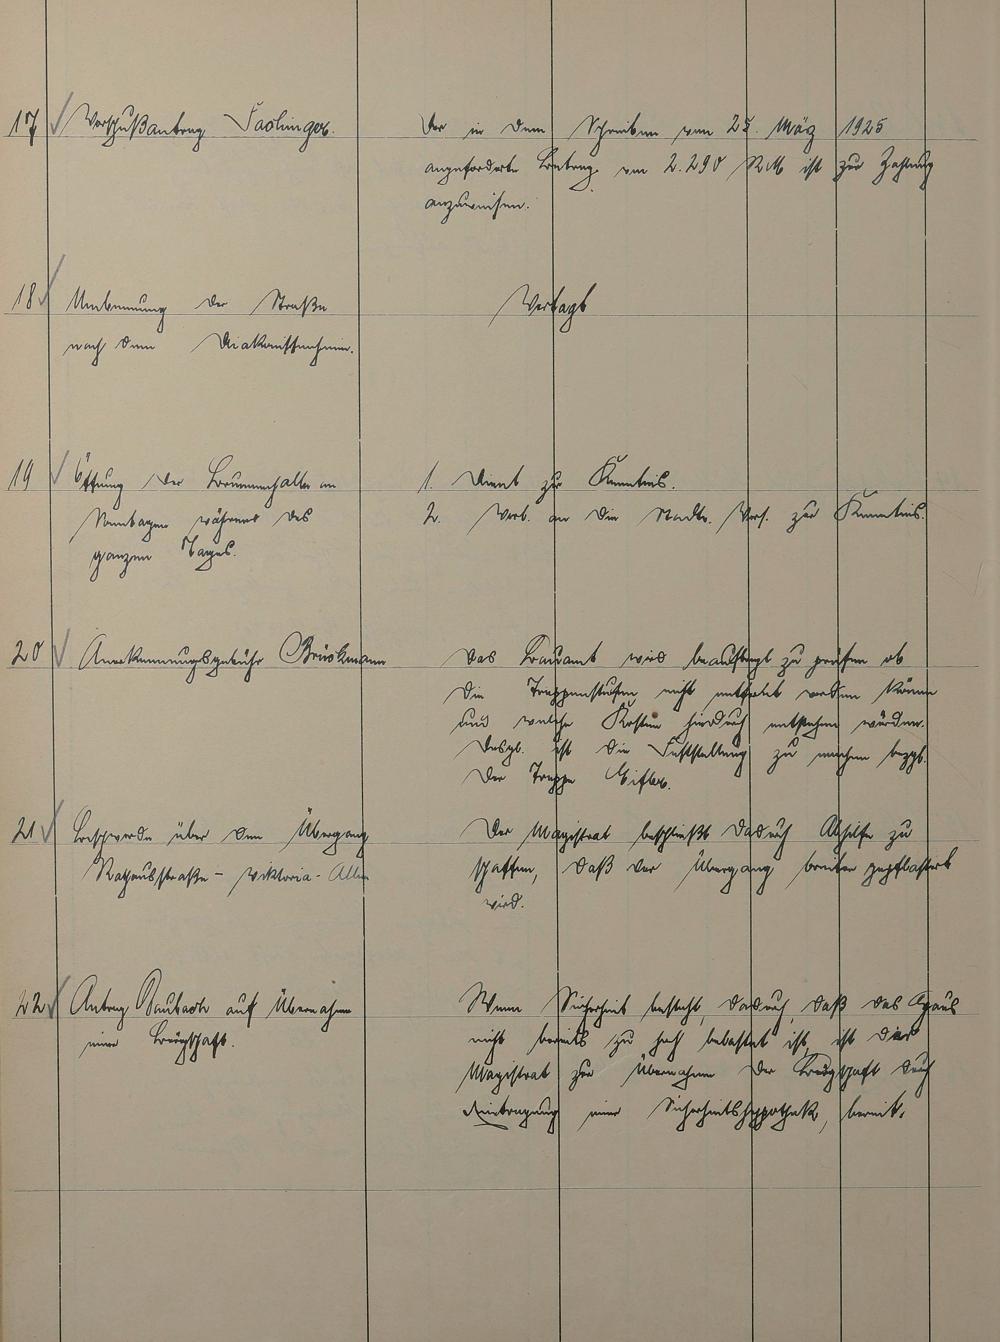 17 Vorschußantrag Faolinger.
Der in dem Schreiben vom 25. März 1925
angeforderte Betrag von 2.290 RM ist zur Zahlung
anzuweisen.
18 Umbennung der Straße
nach dem Diakonissenheim.
Vertagt
19 Öffnung der Brunnenhalle an
Sonntagen während des
ganzen Tages.
1. Dient zur Kenntnis.
2. Werb. an die Stadtv. Vers. zur Kenntnis.
20 Anerkennungsgebühr Brückmann
Das Bauamt wird beauftragt zu prüfen ob
die Treppenstufen nicht entfernt werden können
und welche Kosten hierdurch entstehen würden.
Desgl. ist die Feststellung zu machen bezgl.
der Treppe Eifler.
21 Beschwerde über den Übergang
Rathausstraße - Viktoria-Allee
Der Magistrat beschließt dadurch Abhilfe zu
schaffen, daß der Übergang breiter gepflastert
wird.
22 Antrag Saubach auf Übernahme
einer Bürgschaft.
Wenn Sicherheit besteht, dadurch, daß das Haus
nicht bereits zu hoch belastet ist, ist der
Magistrat zur Übernahme der Bürgschaft durch
Eintragung einer Sicherheitshypothek, bereit.